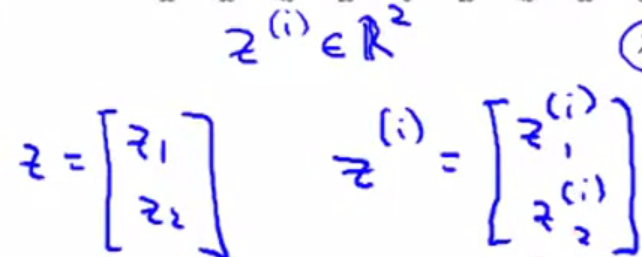 z^{(i)} ∈ ℝ^2
z = [z_1 z_2] z^{(i)} = [z_1^{(i)} z_2^{(i)}]